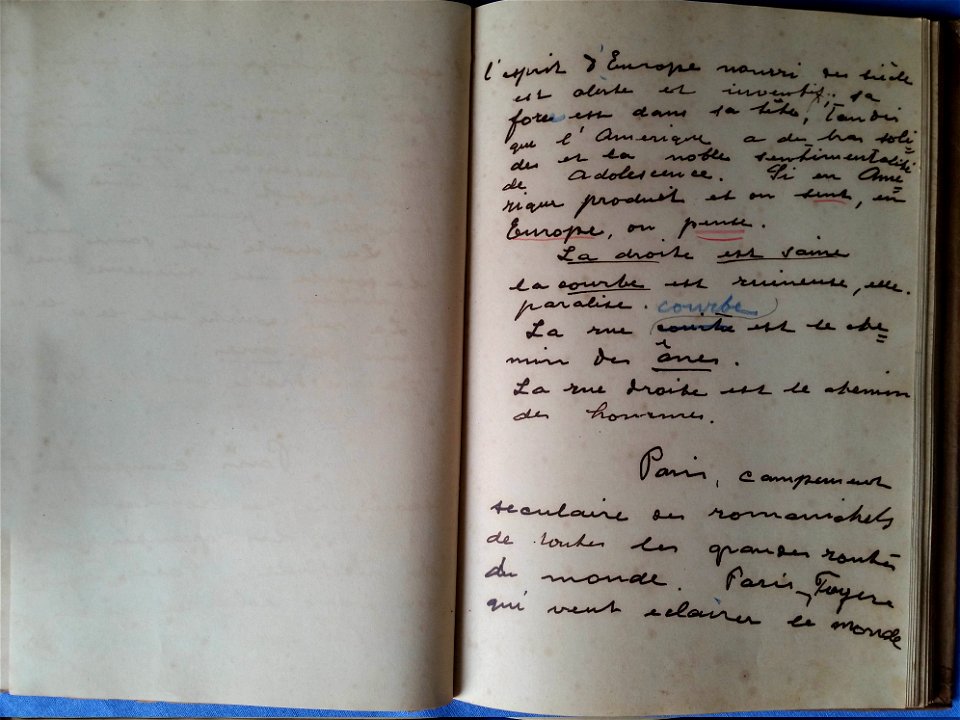 l'esprit d'Europe nourri des siècle
est alerte et inventif; sa
force est dans sa tête, Tandis
que l'Amerique a de bras soli=
des et la noble sentimentalité
de adolescence. Si en Amé=
rique produit et on sent, en
Europe, on pense.
La droite est saine
la courbe est ruineuse, elle
paralise. courbe
La rue courbe est le che=
min des ânes.
La rue droite est le chemin
des hommes.
Paris, campement
seculaire des romanichels
de toutes les grandes routes
du monde. Paris, Foyere
qui veut eclairer le monde